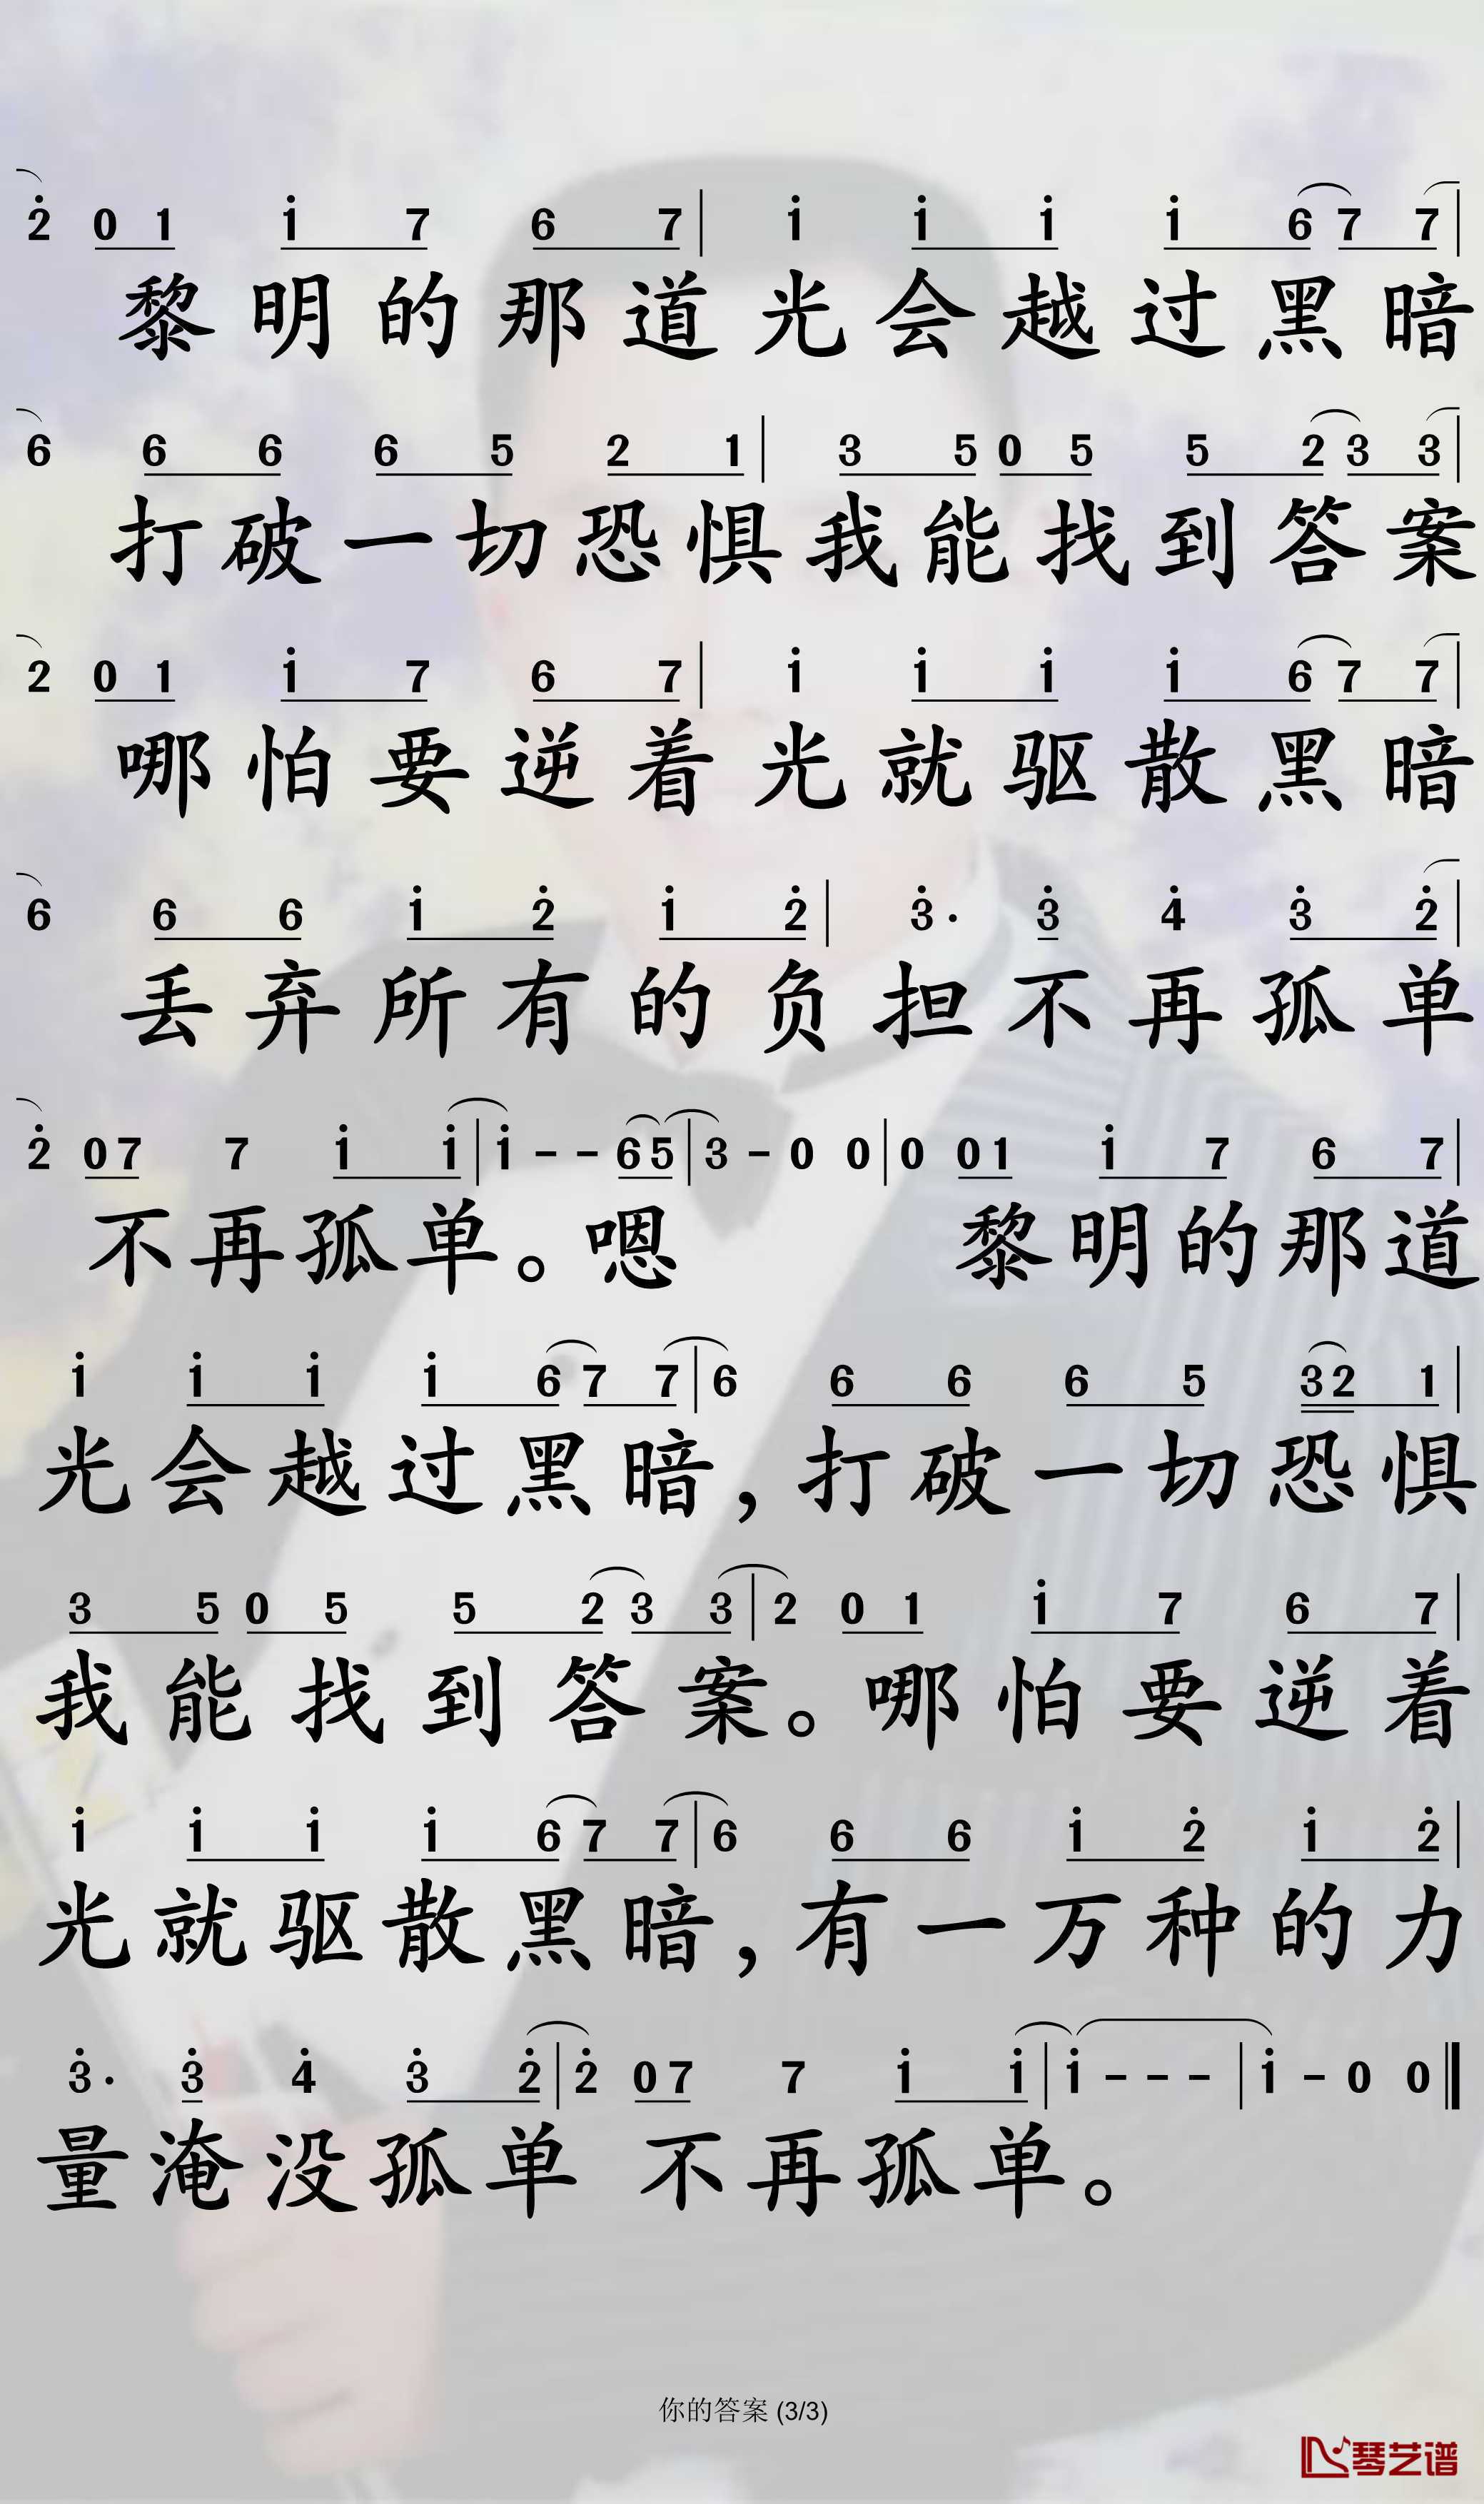 2̇ 0 1 1̇ 7 6 7 | 1̇ 1̇ 1̇ 1̇ 6 7 7 |
黎明的那道光会越过黑暗
6 6 6 6 5 2 1 | 3 5 0 5 5 2 3 3 |
打破一切恐惧我能找到答案
2 0 1 1̇ 7 6 7 | 1̇ 1̇ 1̇ 1̇ 6 7 7 |
哪怕要逆着光就驱散黑暗
6 6 6 1̇ 2̇ 1̇ 2̇ | 3̇· 3̇ 4̇ 3̇ 2̇ |
丢弃所有的负担不再孤单
2̇ 0 7 7 1̇ 1̇ | 1̇ - - 6 5 | 3 - 0 0 | 0 0 1 1̇ 7 6 7 |
不再孤单。嗯 黎明的那道
1̇ 1̇ 1̇ 1̇ 6 7 7 | 6 6 6 6 5 3 2 1 |
光会越过黑暗，打破一切恐惧
3 5 0 5 5 2 3 3 | 2 0 1 1̇ 7 6 7 |
我能找到答案。哪怕要逆着
1̇ 1̇ 1̇ 1̇ 6 7 7 | 6 6 6 1̇ 2̇ 1̇ 2̇ |
光就驱散黑暗，有一万种的力
3̇· 3̇ 4̇ 3̇ 2̇ | 2̇ 0 7 7 1̇ 1̇ | 1̇ - - - | 1̇ - 0 0 ‖
量淹没孤单 不再孤单。
你的答案 (3/3)
琴艺谱